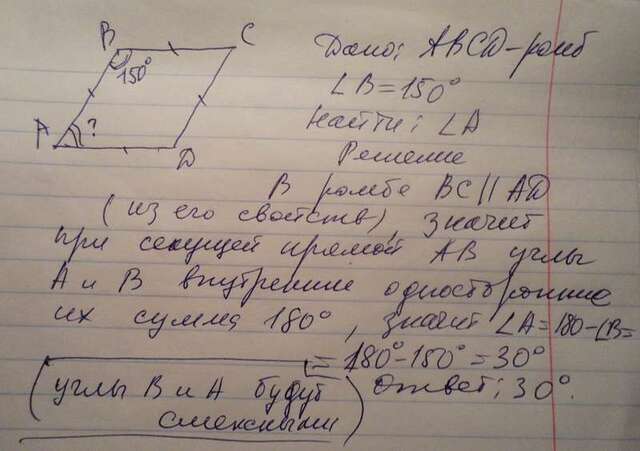 B
C
150°
A
?
D
Дано: ABCD - ромб
∠B = 150°
Найти: ∠A
Решение
В ромбе BC || AD
(из его свойств), значит
при секущей прямой AB углы
A и B внутренние односторонние
их сумма 180°, значит ∠A = 180 - ∠B =
= 180° - 150° = 30°
(углы B и A будут
смежными)
Ответ: 30°.